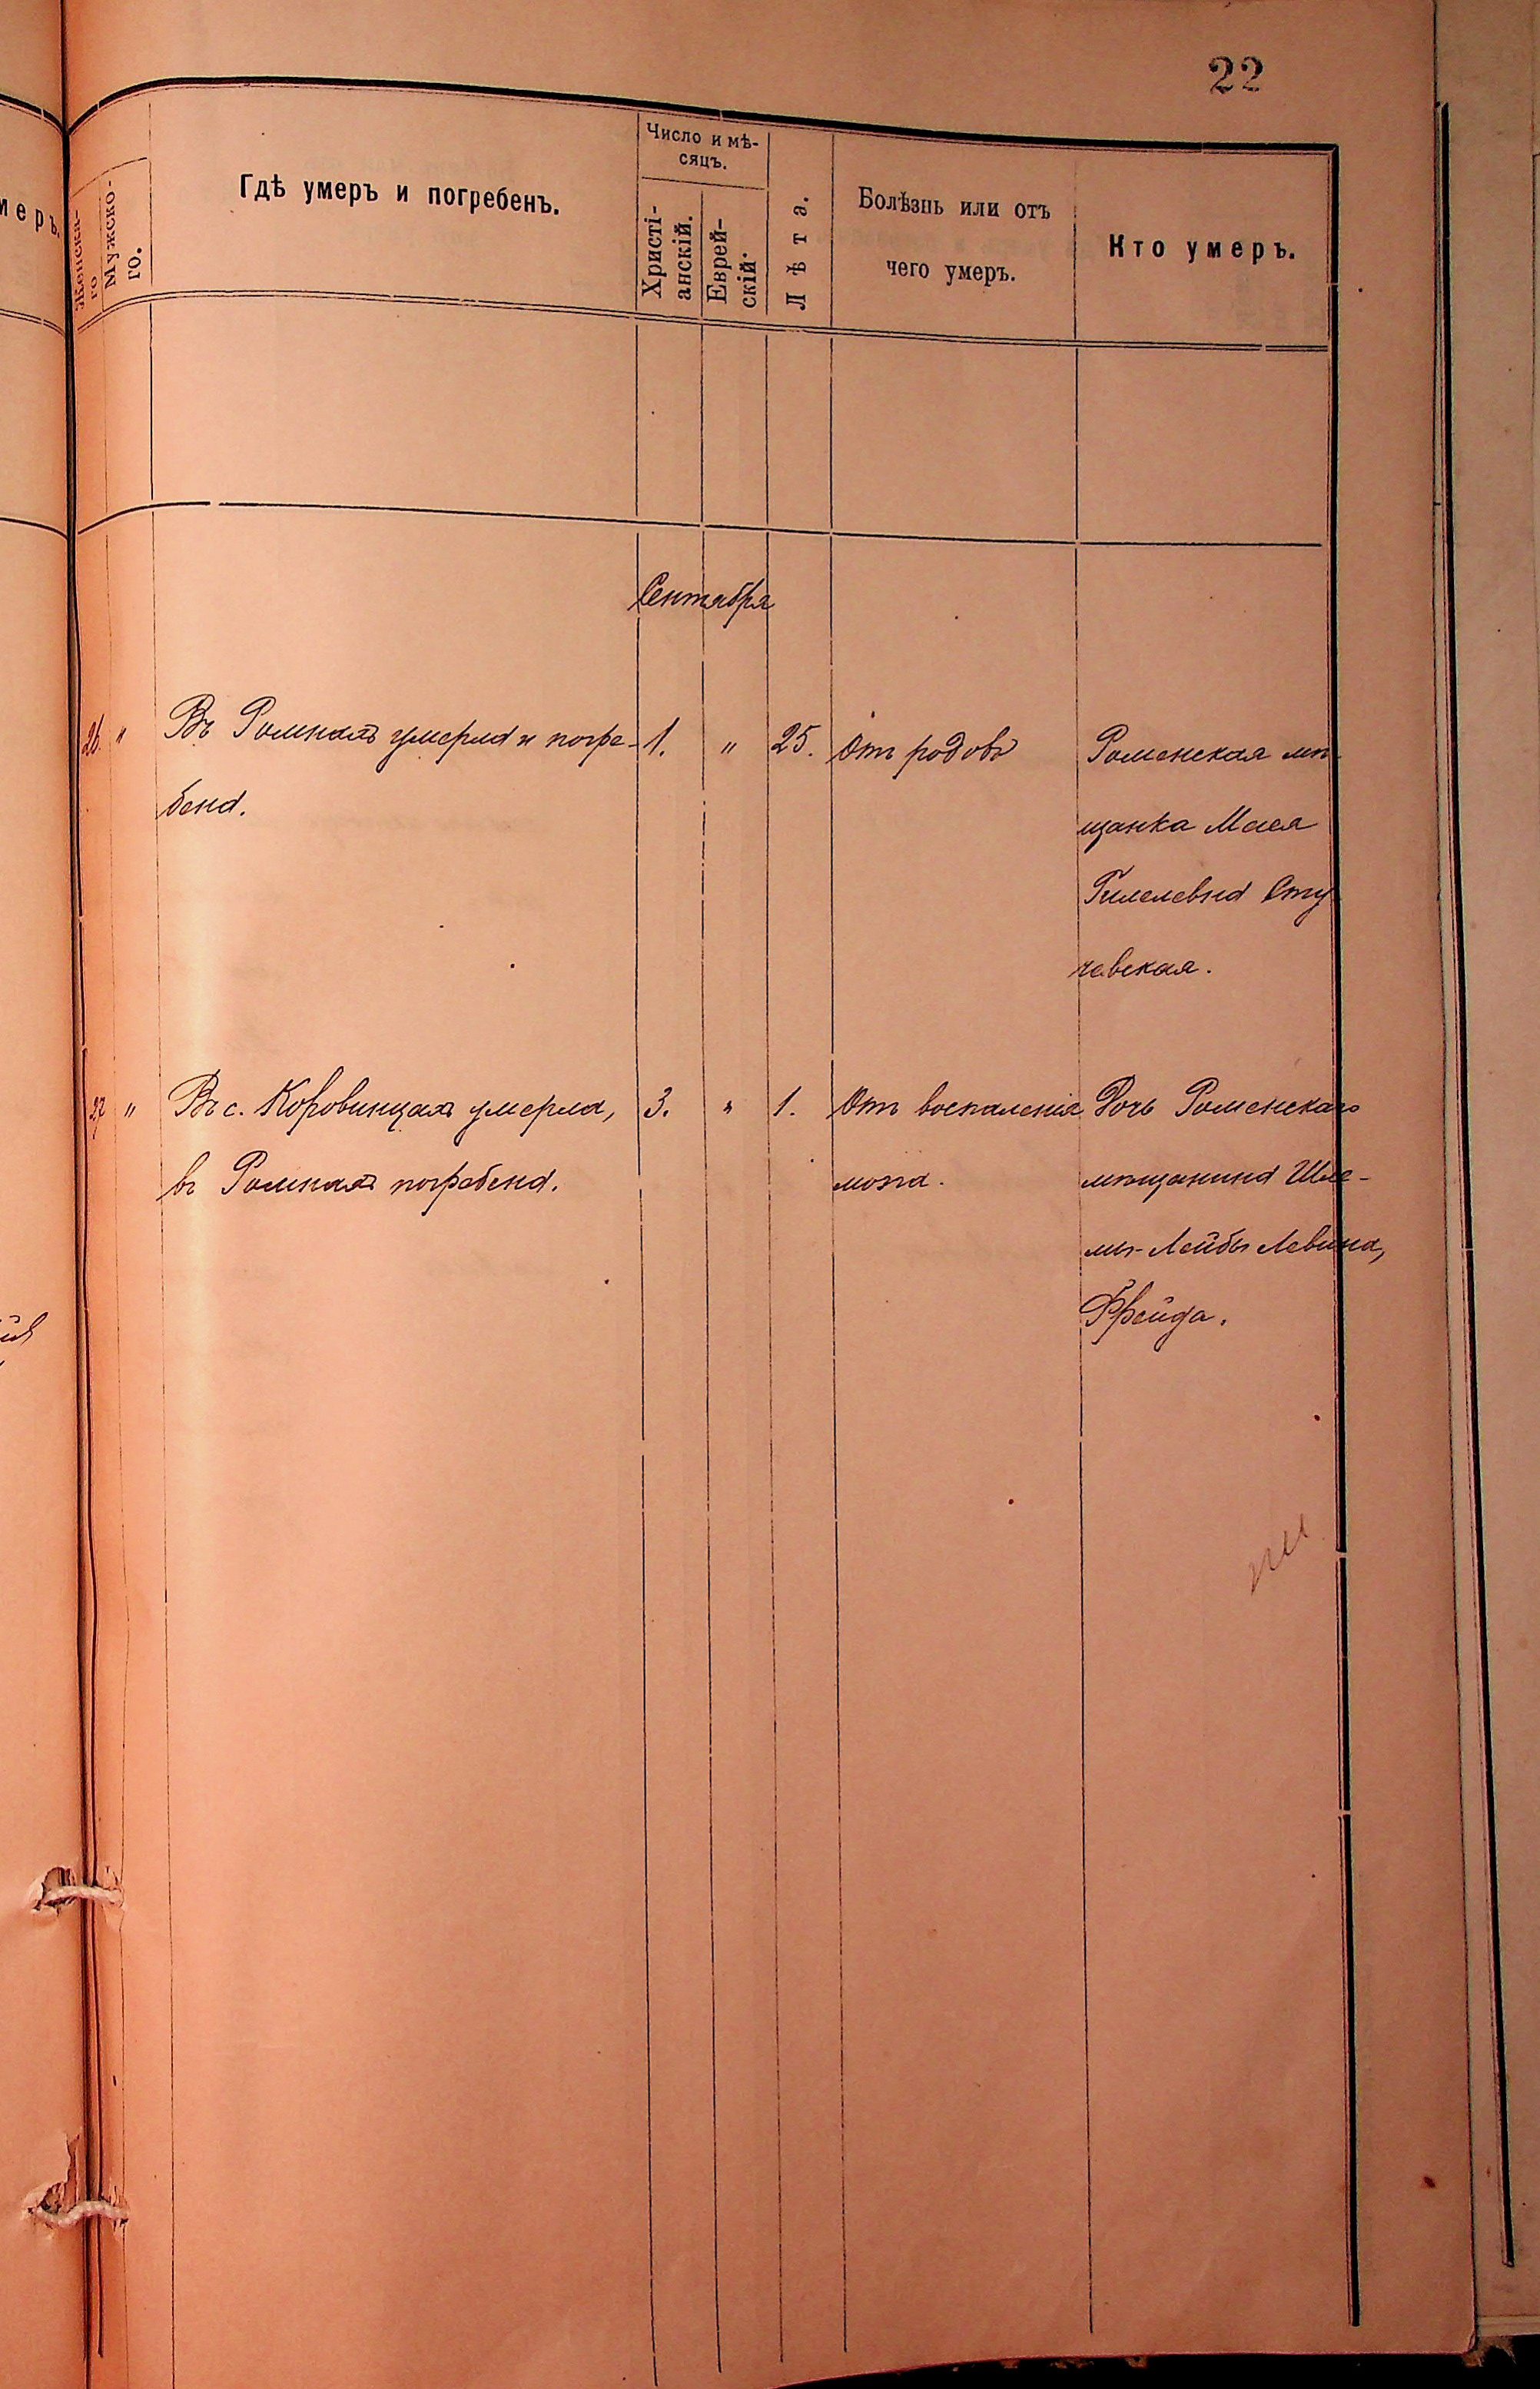 22
меръ
Женска-
го
Мужско-
го.
Гдѣ умеръ и погребенъ.
Число и мѣ-
сяцъ.
Христі-
анскій.
Еврей-
скій.
Лѣта.
Болѣзнь или отъ
чего умеръ.
Кто умеръ.
Сентября
26. " Въ Ромнахъ умерла и погре- 1. " 25. Отъ родовъ Роменская мѣ
бена. щанка Мася
Гилелевна Сту
чевская.
27 " Въ с. Коровинцахъ умерла, 3. " 1. Отъ воспаленія Дочь Роменскаго
въ Ромнахъ погребена. мозга. мѣщанина Шле-
мы-Лейбы Левина,
Фрейда.